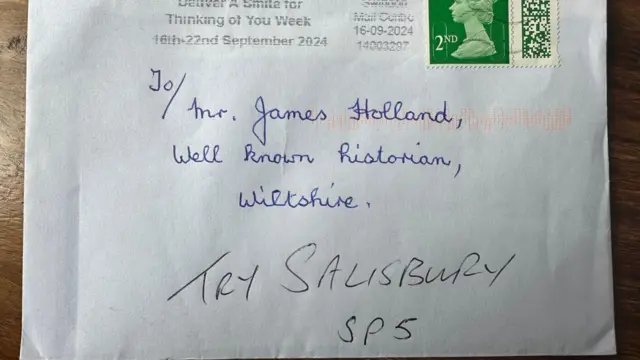 Deliver A Smile for
Thinking of You Week
16th-22nd September 2024
Swindon
Mail Centre
16-09-2024
14003297
2ND
To/
Mr. James Holland,
Well known historian,
Wiltshire.
TRY SALISBURY
SP5